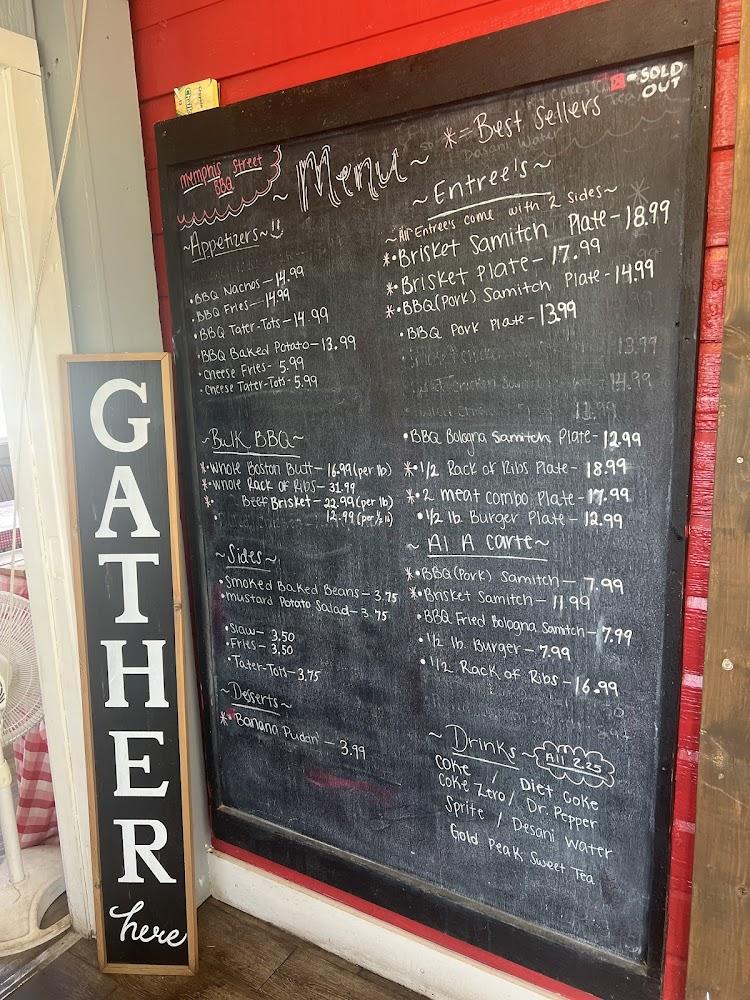 ■ = SOLD OUT
* = Best Sellers
Memphis Street BBQ
~ Menu ~
~Appetizers~
• BBQ Nachos — 14.99
• BBQ Fries — 14.99
• BBQ Tater-Tots — 14.99
• BBQ Baked Potato — 13.99
• Cheese Fries - 5.99
• Cheese Tater-Tots - 5.99
~Bulk BBQ~
*• Whole Boston Butt — 16.99 (per lb)
*• Whole Rack of Ribs — 31.99
*• Beef Brisket — 22.99 (per lb)
• 12.99 (per ½ lb)
~Sides~
• Smoked Baked Beans — 3.75
• Mustard Potato Salad — 3.75
• Slaw — 3.50
• Fries — 3.50
• Tater-Tots — 3.75
~Desserts~
*• Banana Puddn' — 3.99
~Entree's~
~All Entree's come with 2 sides~
*• Brisket Samitch Plate - 18.99
*• Brisket Plate - 17.99
*• BBQ (Pork) Samitch Plate - 14.99
• BBQ Pork Plate - 13.99
13.99
14.99
• BBQ Bologna Samitch Plate - 12.99
*• 1/2 Rack of Ribs Plate - 18.99
*• 2 meat combo Plate - 17.99
• 1/2 lb Burger Plate - 12.99
~ Al A carte ~
*• BBQ (Pork) Samitch — 7.99
*• Brisket Samitch — 11.99
• BBQ Fried Bologna Samitch - 7.99
• 1/2 lb. Burger - 7.99
• 1/2 Rack of Ribs - 16.99
~ Drinks ~ All 2.25
Coke / Diet Coke
Coke Zero / Dr. Pepper
Sprite / Desani Water
Gold Peak Sweet Tea
GATHER
here